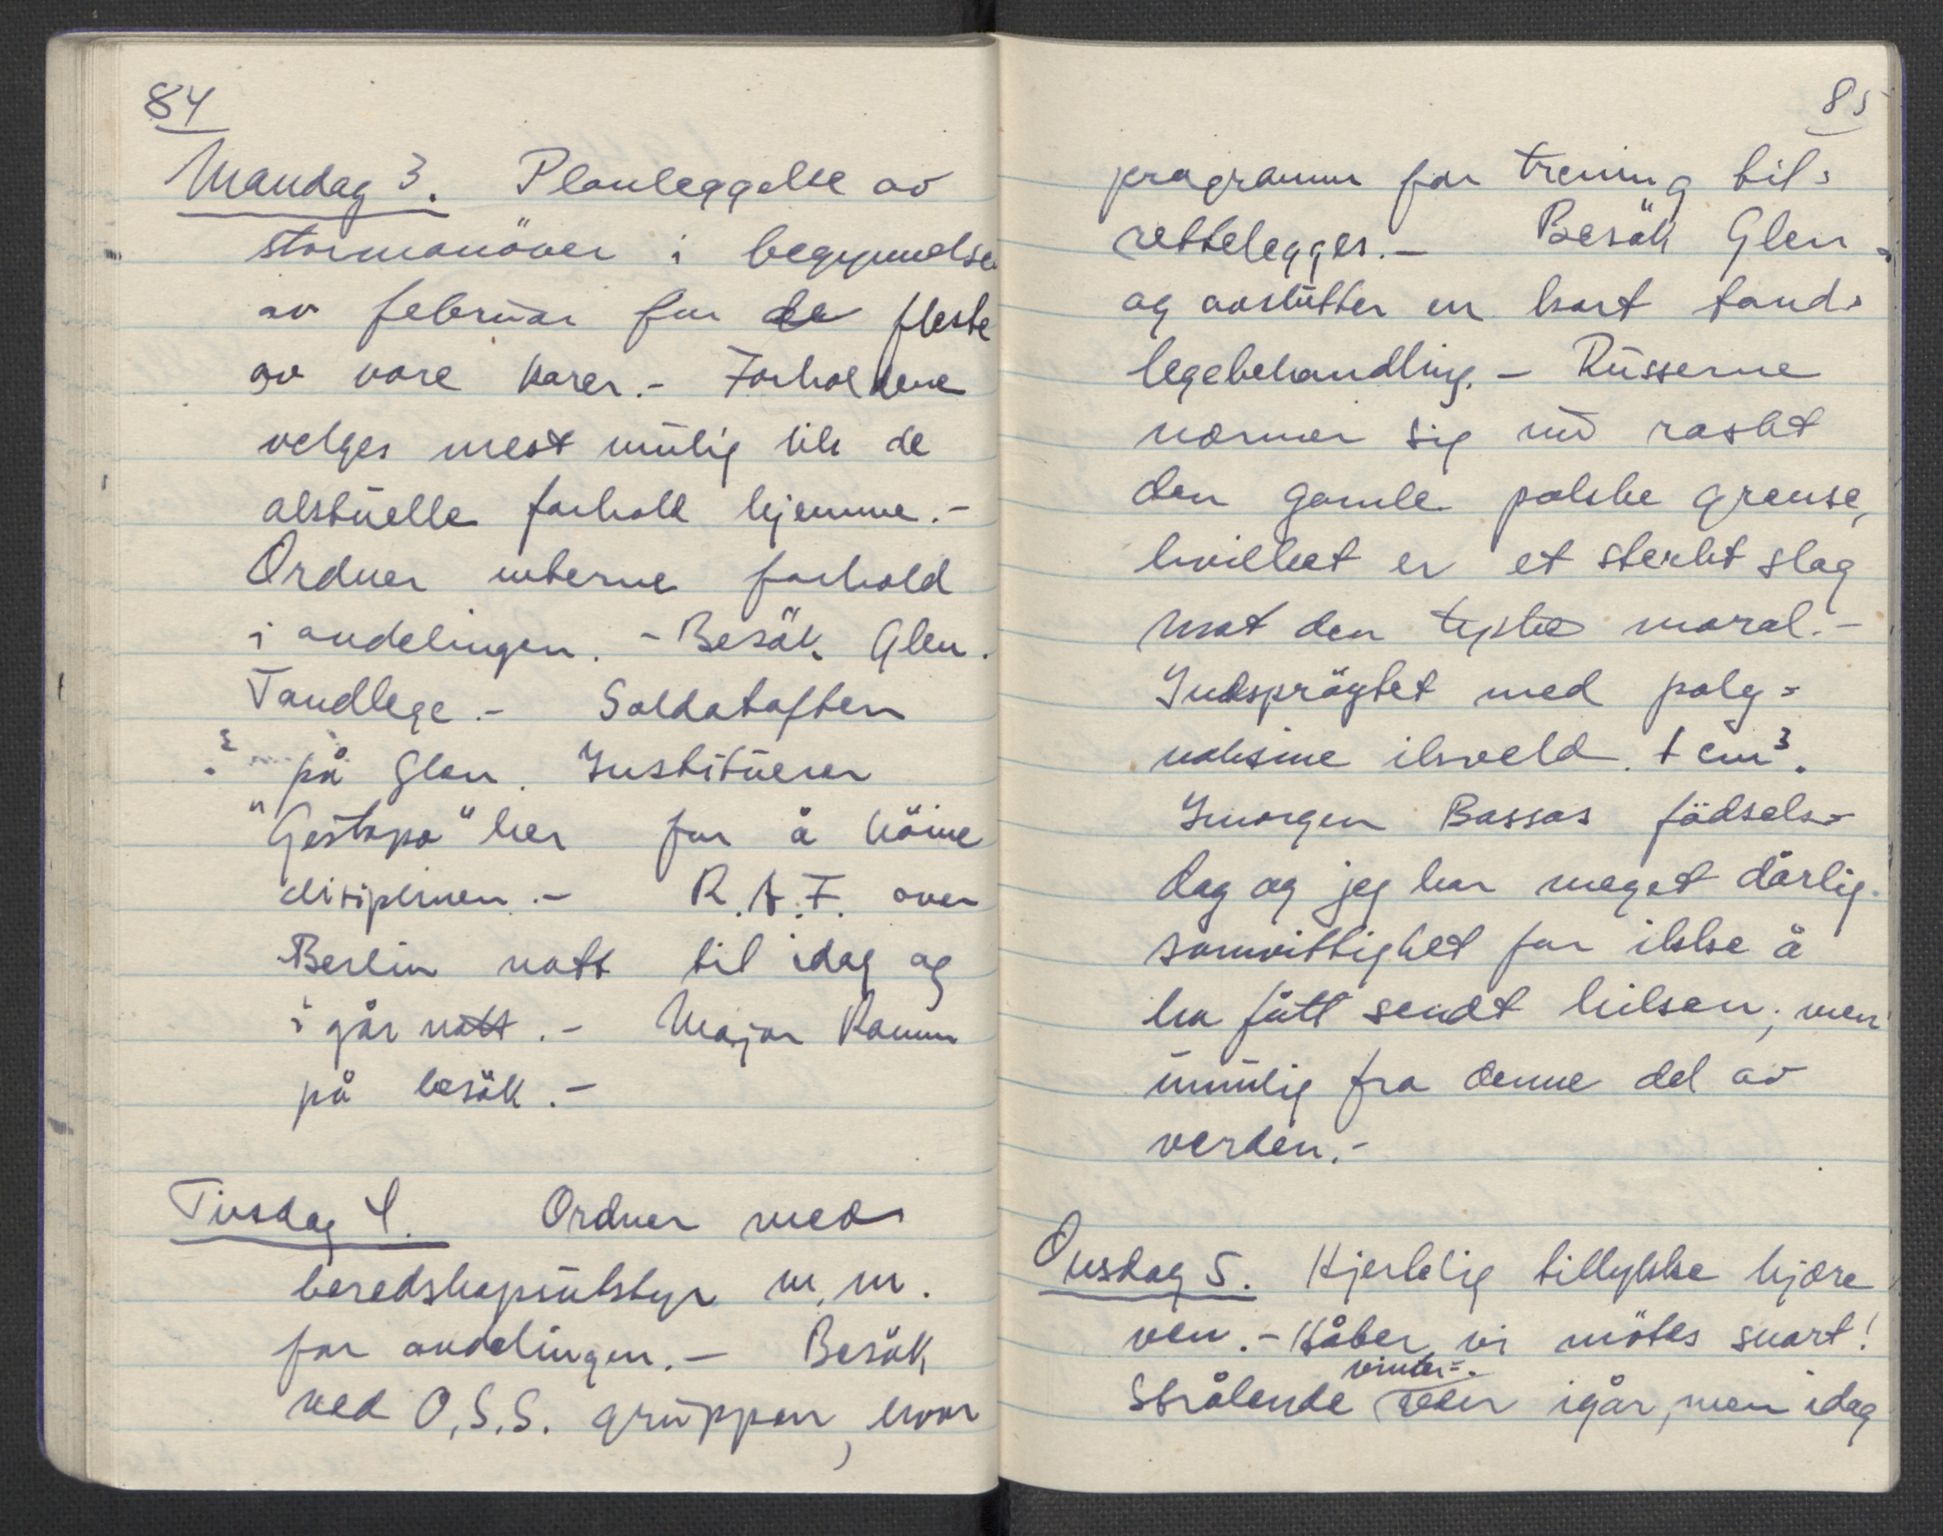 84
Mandag 3. Planleggelse av
stormanöver i begynnelse
av februar for de fleste
av vore karer. - Forholdene
velges mest mulig lik de
aktuelle forhold hjemme. -
Ordner interne forhold
i avdelingen. - Besök Glen.
Tandlege. - Soldataften
på Glen. Instituerer
"Gestapo" her for å höine
disiplinen. - R.A.F. over
Berlin natt til idag og
i går natt. - Major Ramm
på besök. -
Tirsdag 4. Ordner med
beredskapsutstyr m.m.
for avdelingen. - Besök
ved O.S.S. gruppen, hvor
85
programm for trening til=
rettelegges. - Besök Glen
og avslutter en kort tand=
legebehandling. - Russerne
nærmer sig nu raskt
den gamle polske grense,
hvilket er et sterkt slag
mot den tyske moral. -
Indsprögtet med poly=
vaksine ikveld. 1 cm³.
Imorgen Bassas födsels=
dag og jeg har meget dårlig
samvittighet for ikke å
ha fått sendt hilsen, men
umulig fra denne del av
verden. -
Onsdag 5. Hjertelig tillykke kjære
ven. - Håber vi mötes snart!
vinter=
Strålende veer igår, men idag